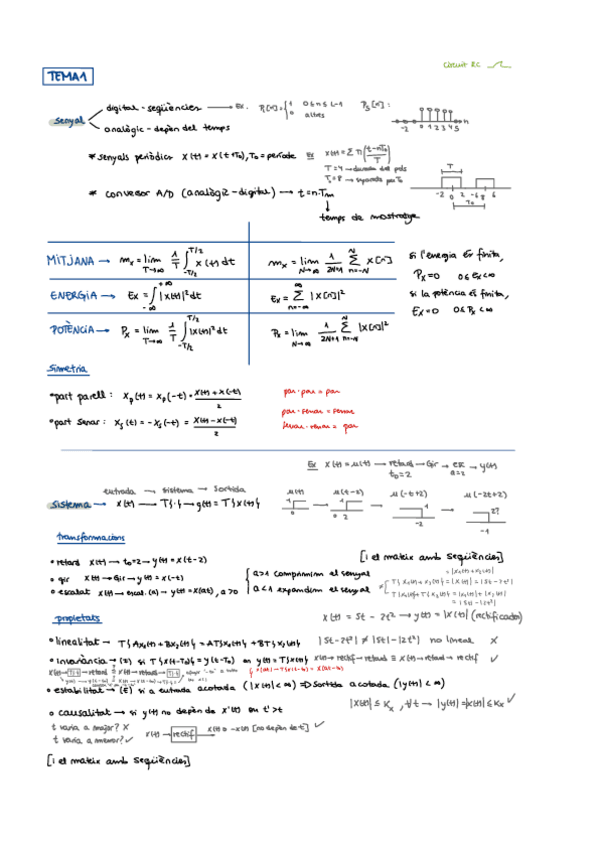 circuit RC
TEMA 1
senyal
digital - seqüències → Ex. P₅[n] = { 1 0≤n≤L-1
0 altres
P₅[n]:
-2 0 1 2 3 4 5 n
analògic - depèn del temps
* senyals periòdics x(t) = x(t+T₀), T₀ = període Ex x(t) = Σ Π((t-nT₀)/T)
T = 4 → duració del pols
T₀ = 8 → separats per T₀
T
-2 0 2 6 8
T₀
* conversor A/D (analògic-digital) → t = n·Tm
temps de mostratge
MITJANA → mx = lim T→∞ 1/T ∫ -T/2 T/2 x(t) dt
mx = lim N→∞ 1/2N+1 Σ n=-N N x[n]
ENERGIA → Ex = ∫ -∞ +∞ |x(t)|² dt
Ex = Σ n=-∞ ∞ |x[n]|²
POTÈNCIA → Px = lim T→∞ 1/T ∫ -T/2 T/2 |x(t)|² dt
Px = lim N→∞ 1/2N+1 Σ n=-N N |x[n]|²
si l'energia és finita,
Px=0 0≤Ex<∞
si la potència és finita,
Ex=0 0≤Px<∞
Simetria
• part parell: xp(t) = xp(-t) = x(t)+x(-t) / 2
par · par = par
par · senar = senar
• part senar: xs(t) = -xs(-t) = x(t)-x(-t) / 2
senar · senar = par
Ex x(t) = u(t) → retard → Gir → esc → y(t)
t₀=2 a=2
entrada → sistema → sortida
sistema → x(t) → T{·} → y(t) = T{x(t)}
u(t) u(t-2) u(-t+2) u(-2t+2)
0 0 2 -2 -1
2?
transformacions
[i el mateix amb seqüències]
• retard x(t) → t₀=2 → y(t) = x(t-2)
• gir x(t) → Gir → y(t) = x(-t)
• escalat x(t) → escal.(a) → y(t) = x(at), a>0
a>1 comprimim el senyal
a<1 expandim el senyal
propietats
x(t) = 5t - 2t² → y(t) = |x(t)| (rectificador)
• linealitat → T{Ax₁(t) + Bx₂(t)} = AT{x₁(t)} + BT{x₂(t)}
|5t-2t²| ≠ |5t|-|2t²| no lineal ✗
• invariància → (I) si T{x(t-T₀)} = y(t-T₀) on y(t) = T{x(t)}
x(t) → rectif → retard ≡ x(t) → retard → rectif ✓
• estabilitat → (E) si a entrada acotada (|x(t)|<∞) ⇒ sortida acotada (|y(t)|<∞)
• causalitat → si y(t) no depèn de x(t') on t'>t
|x(t)| ≤ Kx, ∀t → |y(t)| = |x(t)| ≤ Kx ✓
t varia a major? ✗
t varia a menor? ✓
x(t) → rectif → x(t) o -x(t) [no depèn de t'] ✓
[i el mateix amb seqüències]